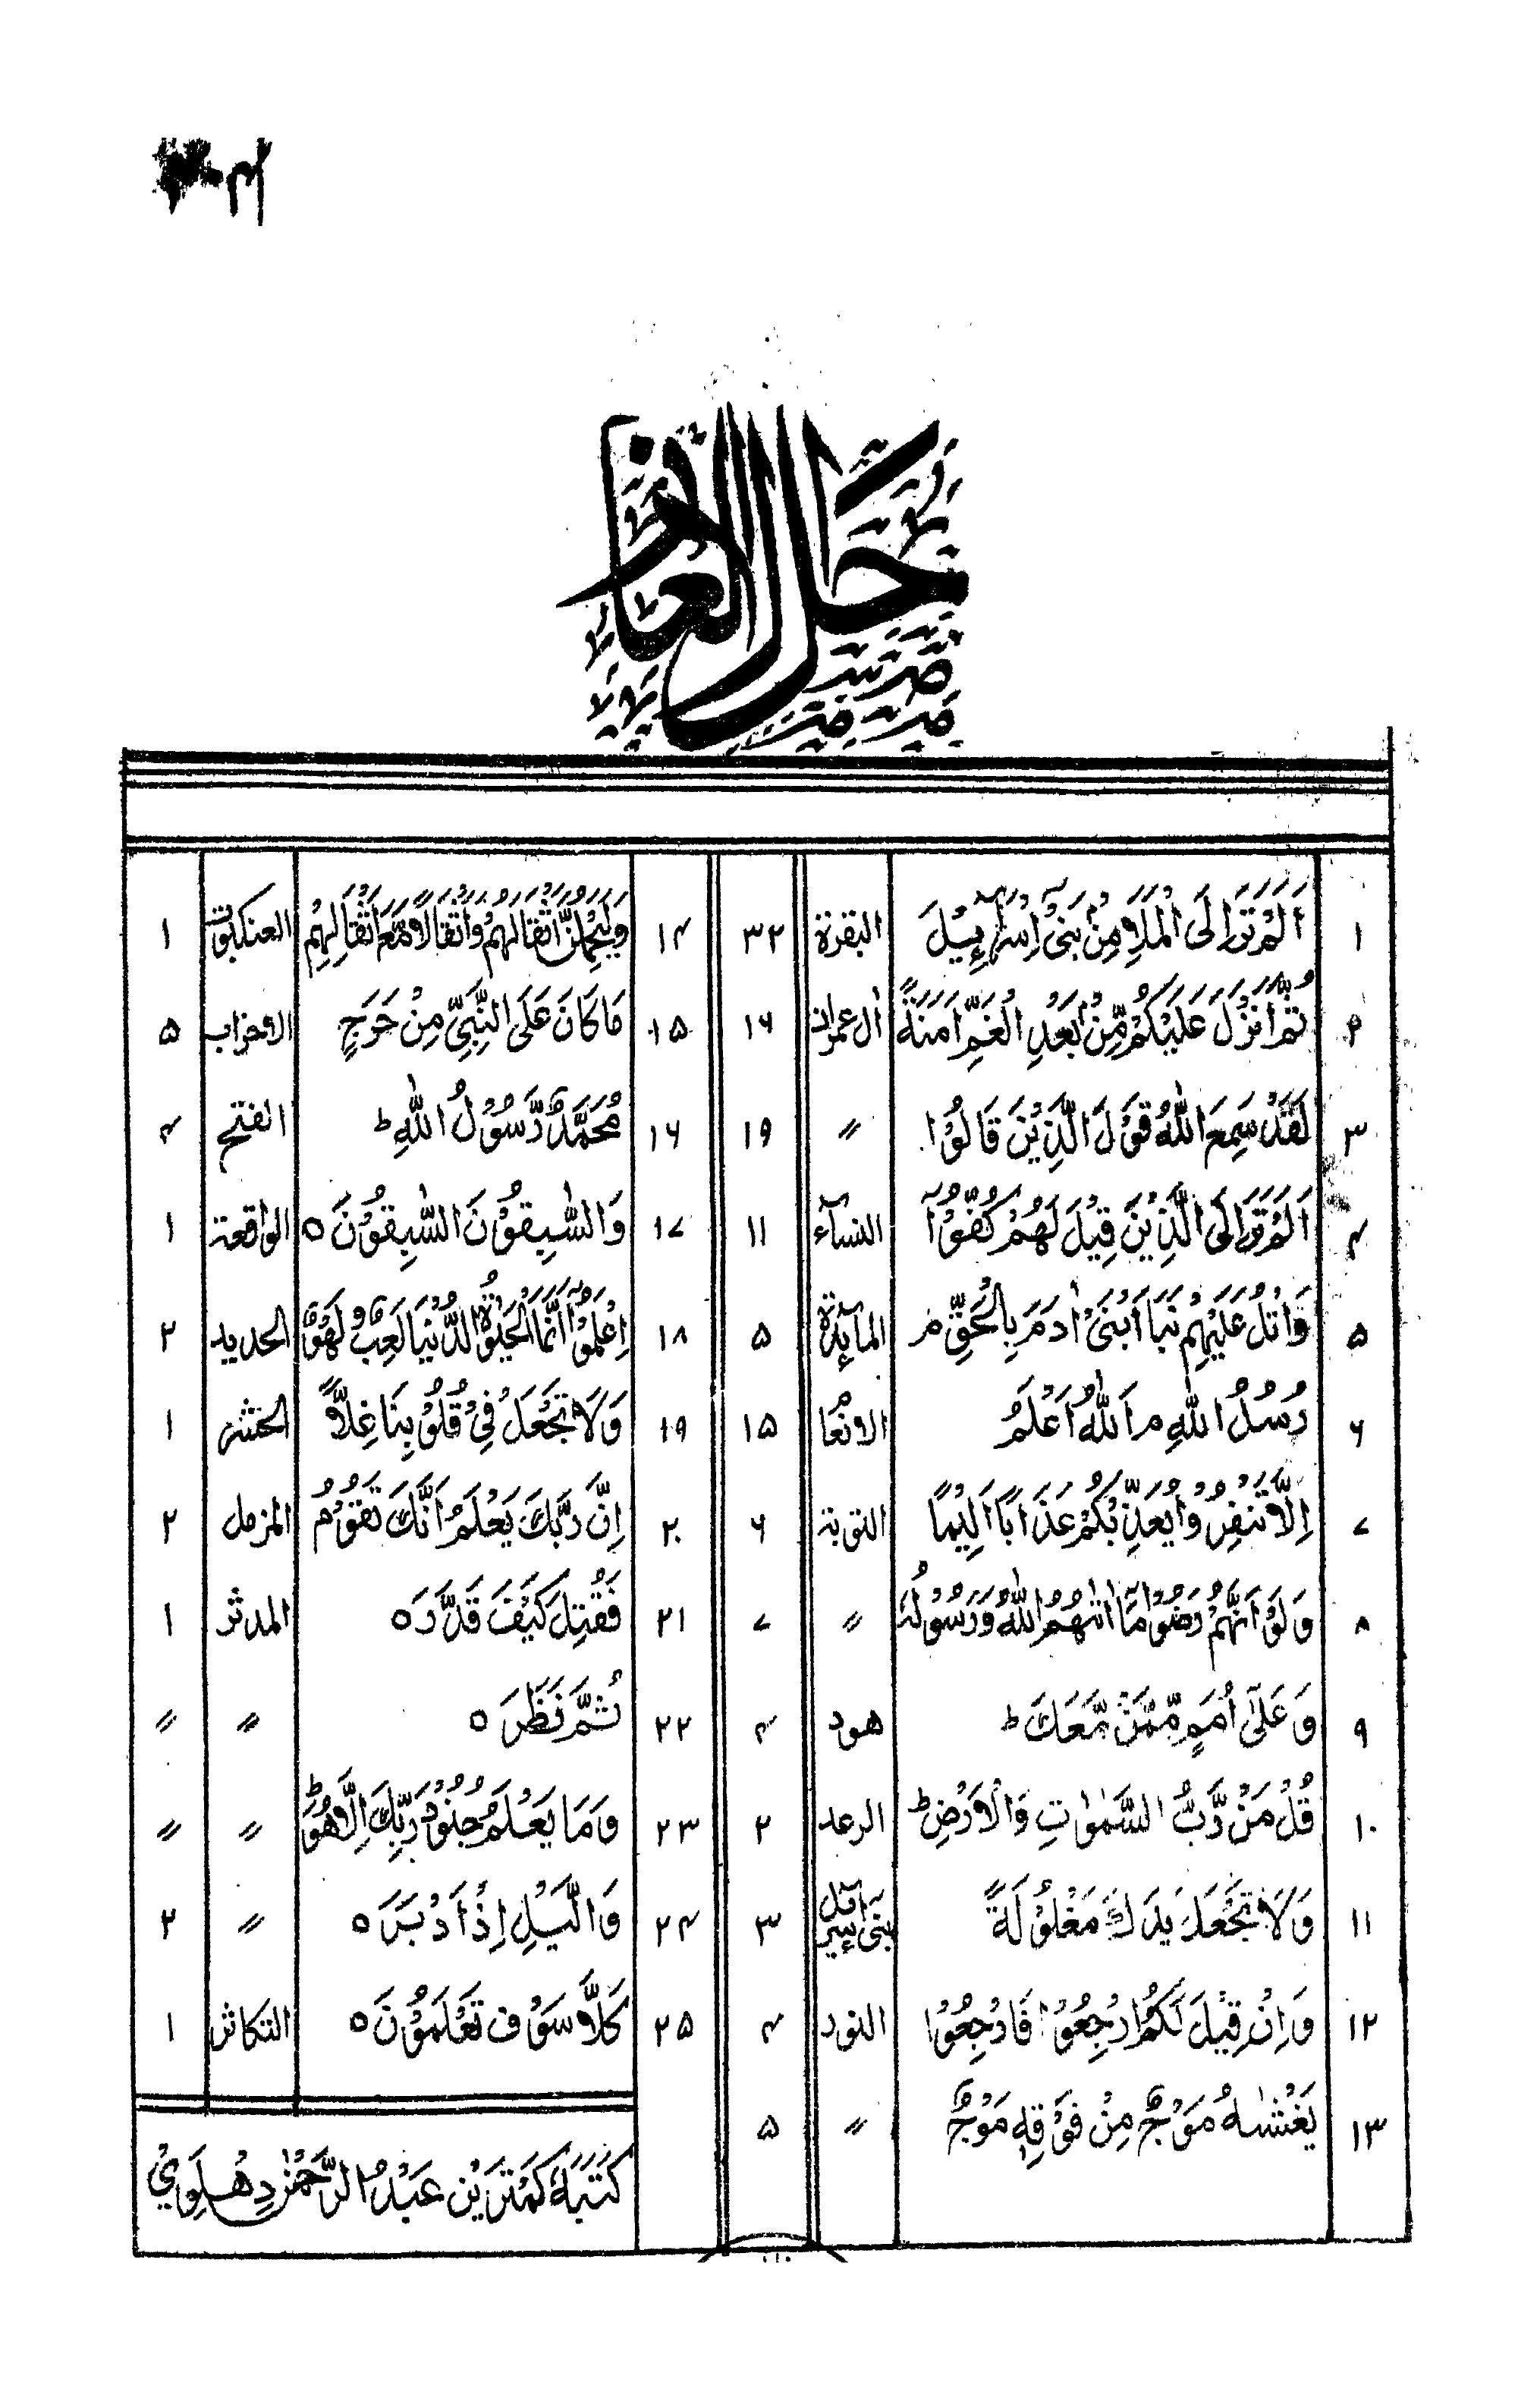 حل الالغاز
۱ اَلَمْ تَرَ اِلَى الْمَلَاِ مِنْۢ بَنِيْٓ اِسْرَآءِيْلَ البقرة ۳۲
۲ ثُمَّ اَنْزَلَ عَلَيْكُمْ مِّنْۢ بَعْدِ الْغَمِّ اَمَنَةً اٰل عمران ۱۶
۳ لَقَدْ سَمِعَ اللّٰهُ قَوْلَ الَّذِيْنَ قَالُوْا 〃 ۱۹
۴ اَلَمْ تَرَ اِلَى الَّذِيْنَ قِيْلَ لَهُمْ كُفُّوْٓا النسآء ۱۱
۵ وَاتْلُ عَلَيْهِمْ نَبَاَ ابْنَيْ اٰدَمَ بِالْحَقِّ م المآئدة ۵
۶ رُسُلُ اللّٰهِ م اَللّٰهُ اَعْلَمُ الانعام ۱۵
۷ اِلَّا تَنْفِرُوْا يُعَذِّبْكُمْ عَذَابًا اَلِيْمًا التوبة ۶
۸ وَلَوْ اَنَّهُمْ رَضُوْا مَآ اٰتٰهُمُ اللّٰهُ وَرَسُوْلُهٗ 〃 ۷
۹ وَعَلٰٓى اُمَمٍ مِّمَّنْ مَّعَكَ ط هود ۴
۱۰ قُلْ مَنْ رَّبُّ السَّمٰوٰتِ وَالْاَرْضِ ط الرعد ۲
۱۱ وَلَا تَجْعَلْ يَدَكَ مَغْلُوْلَةً بنی اسرآءيل ۳
۱۲ وَاِنْ قِيْلَ لَكُمُ ارْجِعُوْا فَارْجِعُوْا النور ۴
۱۳ يَغْشٰىهُ مَوْجٌ مِّنْ فَوْقِهٖ مَوْجٌ 〃 ۵
۱۴ وَلَيَحْمِلُنَّ اَثْقَالَهُمْ وَاَثْقَالًا مَّعَ اَثْقَالِهِمْ العنكبوت ۱
۱۵ مَا كَانَ عَلَى النَّبِيِّ مِنْ حَرَجٍ الاحزاب ۵
۱۶ مُحَمَّدٌ رَّسُوْلُ اللّٰهِ ط الفتح ۴
۱۷ وَالسّٰبِقُوْنَ السّٰبِقُوْنَ ۝ الواقعة ۱
۱۸ اِعْلَمُوْٓا اَنَّمَا الْحَيٰوةُ الدُّنْيَا لَعِبٌ وَّلَهْوٌ الحديد ۲
۱۹ وَلَا تَجْعَلْ فِيْ قُلُوْبِنَا غِلًّا الحشر ۱
۲۰ اِنَّ رَبَّكَ يَعْلَمُ اَنَّكَ تَقُوْمُ المزمل ۲
۲۱ فَقُتِلَ كَيْفَ قَدَّرَ ۝ المدثر ۱
۲۲ ثُمَّ نَظَرَ ۝ 〃 〃
۲۳ وَمَا يَعْلَمُ جُنُوْدَ رَبِّكَ اِلَّا هُوَ ط 〃 〃
۲۴ وَالَّيْلِ اِذْ اَدْبَرَ ۝ 〃 ۲
۲۵ كَلَّا سَوْفَ تَعْلَمُوْنَ ۝ التكاثر ۱
كَتَبَهٗ كمترین عَبْدُ الرَّحْمٰن دِهْلَوِيْ